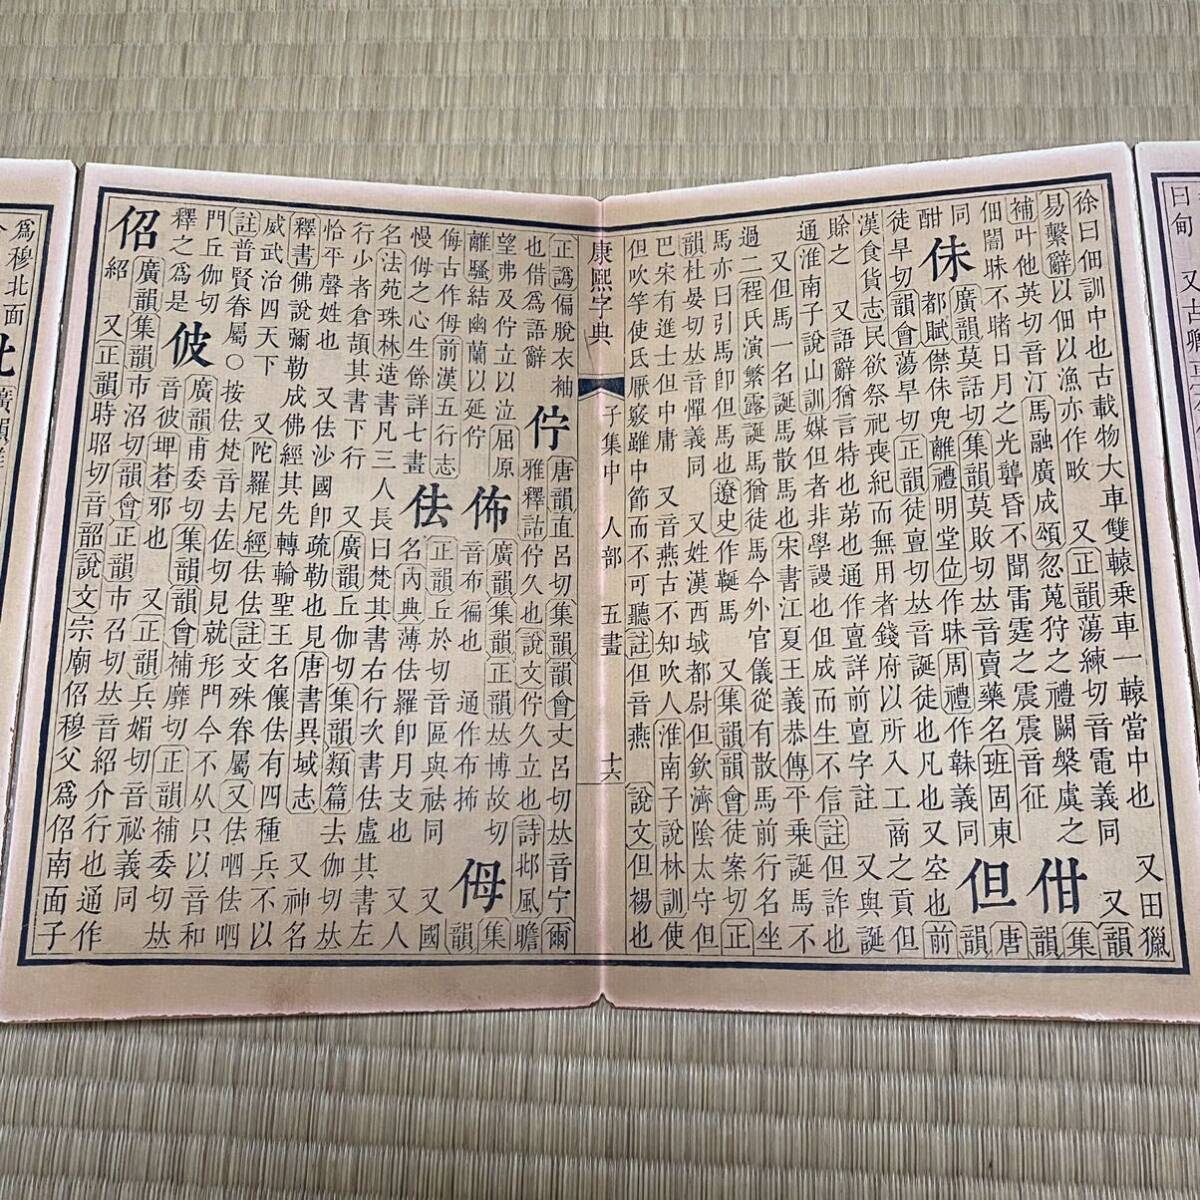 曰甸
徐曰佃訓中也古載物大車雙轅乘車一轅當中也 又田獵
易繫辭以佃以漁亦作畋 又正韻蕩練切音電義同 又韻
補叶他英切音汀馬融廣成頌忽蒐狩之禮闕槃虞之
佃闇昧不睹日月之光聾昏不聞雷霆之震震音征 佄 集韻
同 佅 廣韻莫話切集韻莫敗切𠀤音賣藥名班固東
都賦僸佅兜離禮明堂位作昧周禮作韎義同 但 唐韻
酣
徒旱切韻會蕩旱切正韻徒亶切𠀤音誕徒也凡也又空也前
漢食貨志民欲祭祀喪紀而無用者錢府以所入工商之貢但
賒之 又語辭猶言特也弟也通作亶詳前亶字註 又與誕
通淮南子說山訓媒但者非學謾也但成而生不信註但詐也
又但馬一名誕馬散馬也宋書江夏王義恭傳平乘誕馬不
過二程氏演繁露誕馬猶徒馬今外官儀從有散馬前行名坐
馬亦曰引馬卽但馬也遼史作䩥馬 又集韻韻會徒案切正
韻杜晏切𠀤音憚義同 又姓漢西域都尉但欽濟陰太守但
巴宋有進士但中庸 又音燕古不知吹人淮南子說林訓使
但吹竽使氏厭竅雖中節而不可聽註但音燕 說文但裼也
康熙字典 子集中 人部 五畫 十六
正譌偏脫衣袖
也借爲語辭
佇 唐韻直呂切集韻韻會丈呂切𠀤音宁爾
雅釋詁佇久也說文佇久立也詩邶風瞻
望弗及佇立以泣屈原
離騷結幽蘭以延佇
佈 廣韻集韻正韻𠀤博故切
音布徧也 通作布抪
㑄 集韻
侮古作㑄前漢五行志
慢㑄之心生餘詳七畫
佉 正韻丘於切音區與祛同 又國
名內典薄佉羅卽月支也 又人
名法苑珠林造書凡三人長曰梵其書右行次書佉盧其書左
行少者倉頡其書下行 又廣韻丘伽切集韻類篇去伽切𠀤
恰平聲姓也 又佉沙國卽疏勒也見唐書異域志 又神名
釋書佛說彌勒成佛經其先轉輪聖王名儴佉有四種兵不以
威武治四天下 又陀羅尼經佉佉註文殊眷屬又佉呬佉呬
註普賢眷屬〇按佉梵音去佐切見就形門今不从只以音和
門丘伽切
釋之爲是
佊 廣韻甫委切集韻韻會補靡切正韻補委切𠀤
音彼埤蒼邪也 又正韻兵媚切音祕義同
佋 廣韻集韻市沼切韻會正韻市召切𠀤音紹介行也通作
紹 又正韻時昭切音韶說文宗廟佋穆父爲佋南面子
爲穆北面